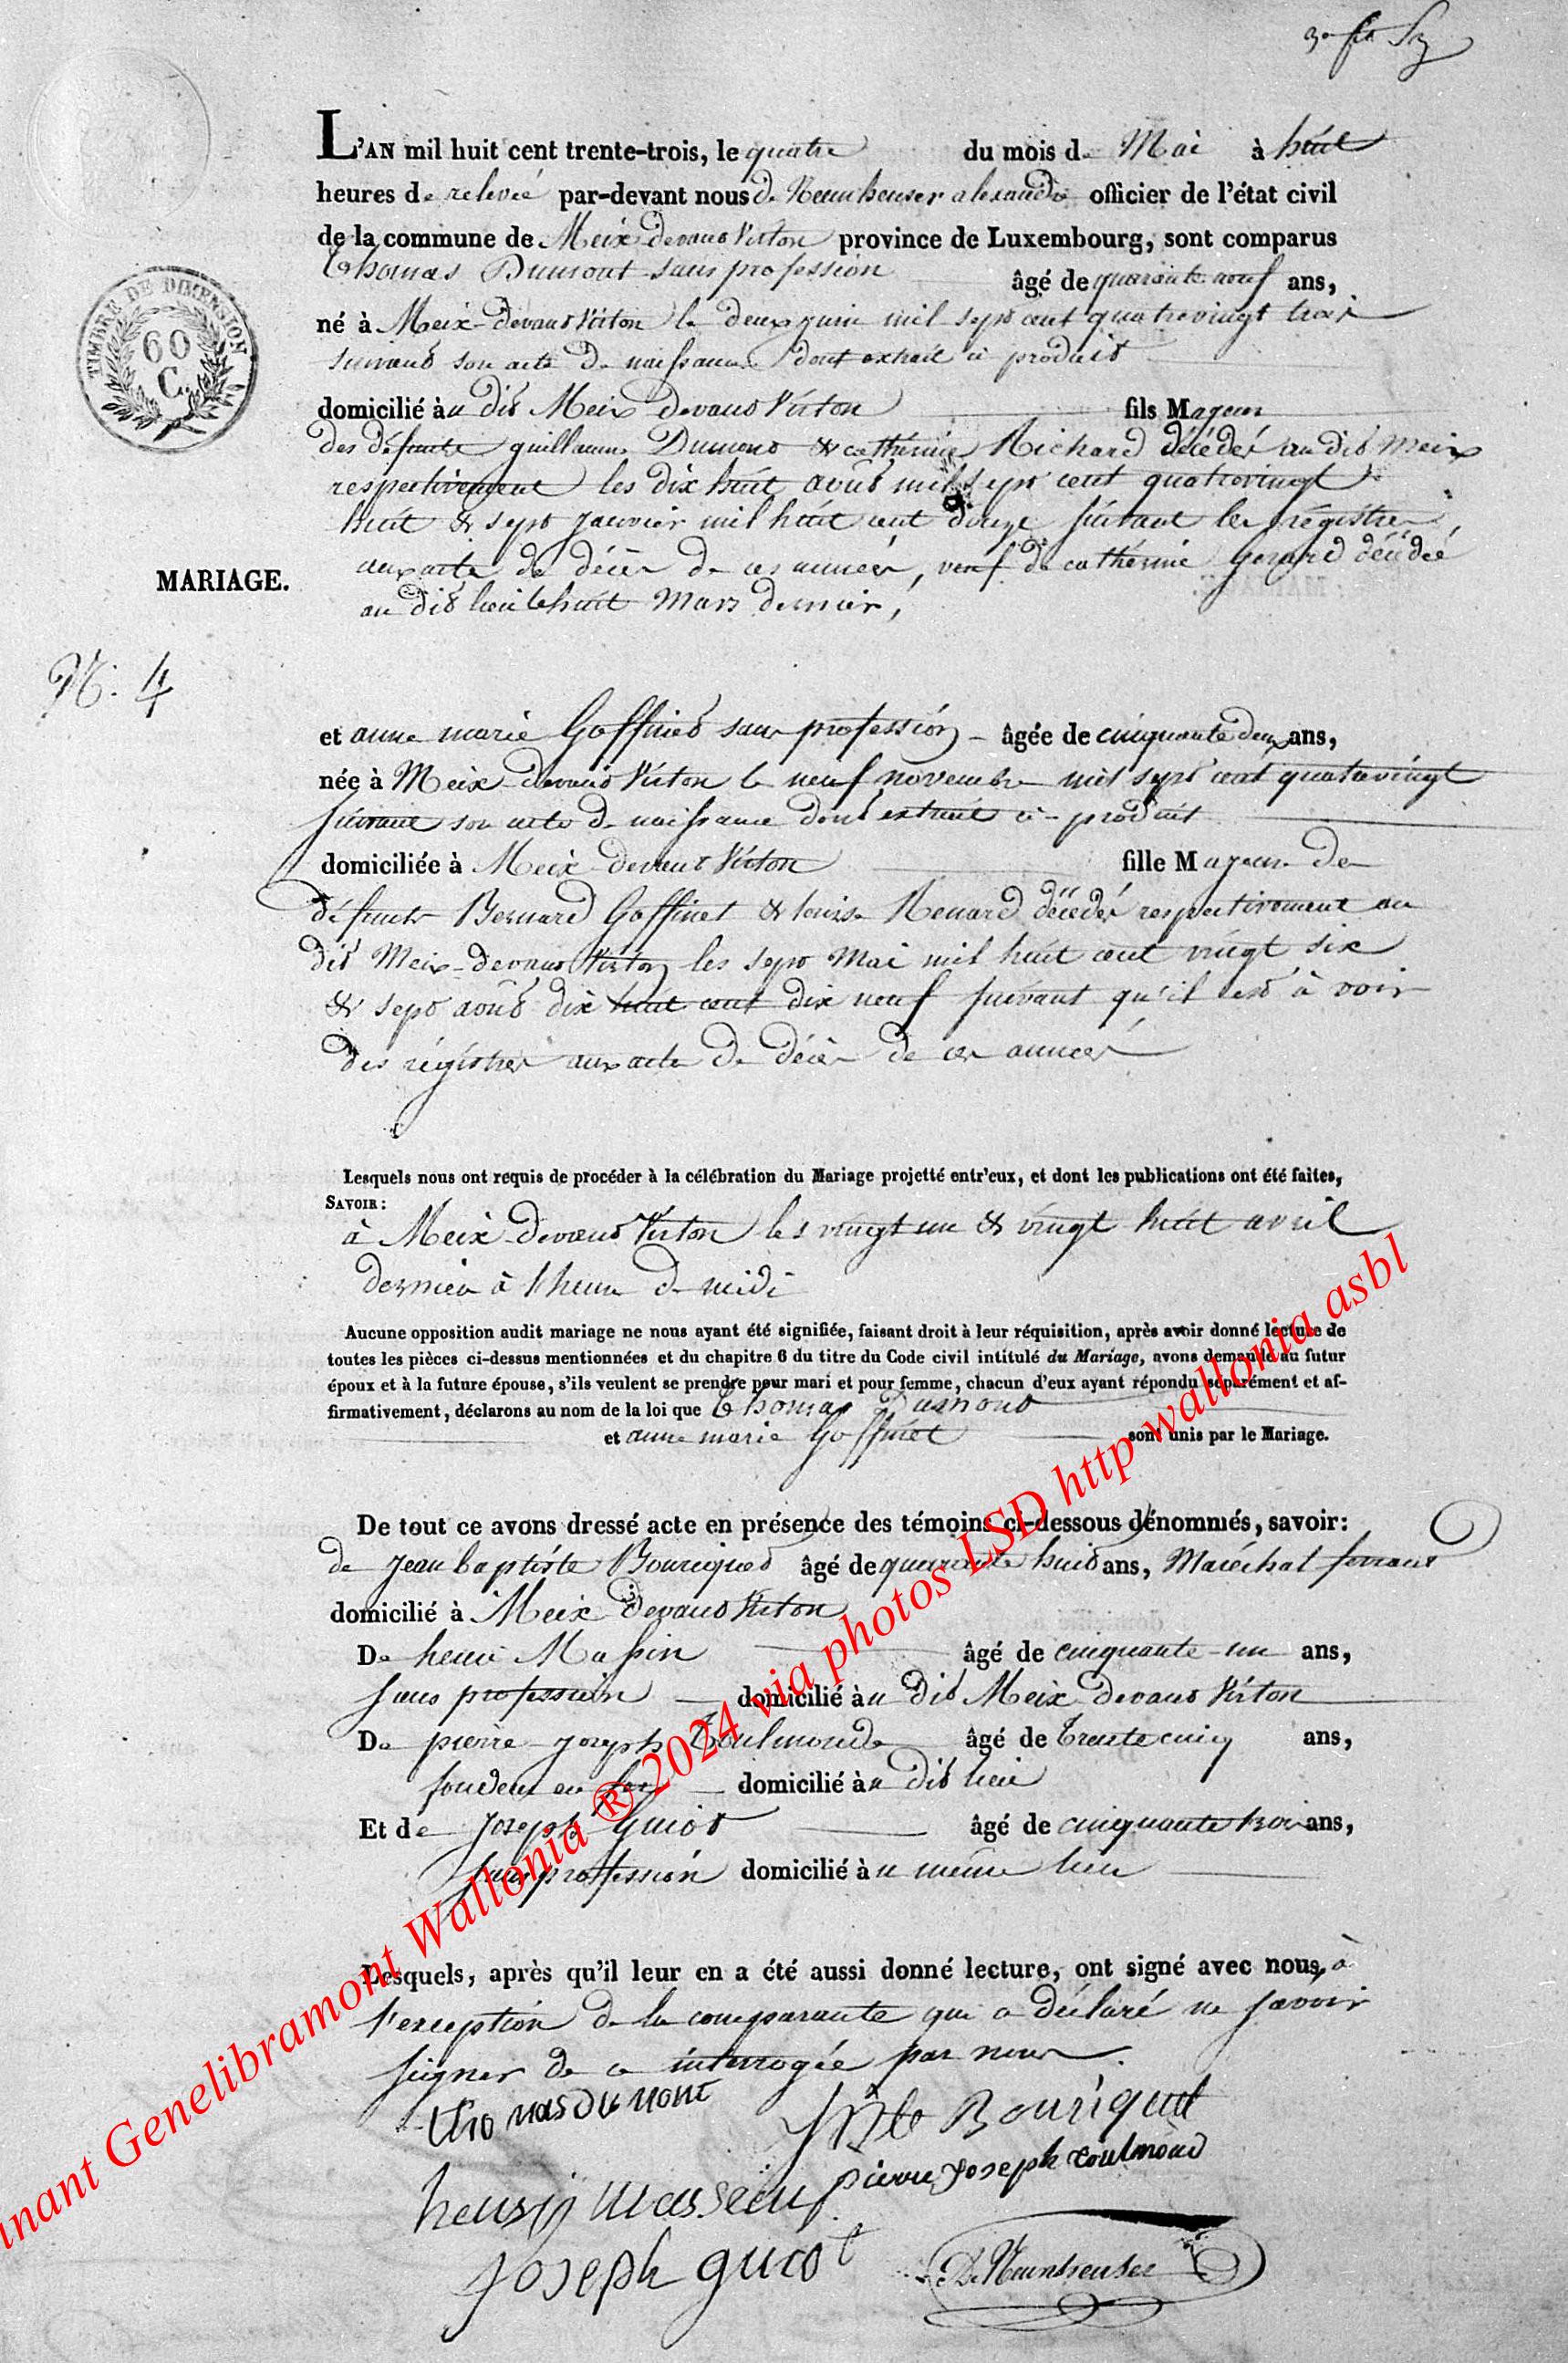 L'AN mil huit cent trente-trois, le quatre du mois de Mai à huit
heures de relevée par-devant nous de Neunheuser alexandre officier de l'état civil
de la commune de Meix devant Virton province de Luxembourg, sont comparus
Thomas Dumont sans profession âgé de quarante neuf ans,
né à Meix-devant Virton le deux juin mil sept cent quatrevingt trois
suivant son acte de naissance dont extrait ci produit
domicilié au dit Meix devant Virton fils Majeur
des défunts guillaume Dumont & cathérine Richard décédés au dit Meix
respectivement les dix huit août mil sept cent quatrevingt
huit & sept janvier mil huit cent douze suivant les régistres
aux acte de décès de ces années, veuf de cathérine gerard décédée
au dit lieu le huit Mars dernier,
MARIAGE.
N. 4
et anne marie Goffinet sans profession âgée de cinquante deux ans,
née à Meix-devant Virton le neuf novembre mil sept cent quatrevingt
suivant son acte de naissance dont extrait ci-produit
domiciliée à Meix-devant Virton fille Majeure de
défunts Bernard Goffinet & louise Renard décédés respectivement au
dit Meix-devant Virton les sept Mai mil huit cent vingt six
& sept août dix huit cent dix neuf suivant qu'il est à voir
des régistres aux acte de décès de ces années
Lesquels nous ont requis de procéder à la célébration du Mariage projetté entr'eux, et dont les publications ont été faites,
SAVOIR:
à Meix-devant Virton les vingt un & vingt huit avril
dernier à l'heure de midi
Aucune opposition audit mariage ne nous ayant été signifiée, faisant droit à leur réquisition, après avoir donné lecture de
toutes les pièces ci-dessus mentionnées et du chapitre 6 du titre du Code civil intitulé du Mariage, avons demandé au futur
époux et à la future épouse, s'ils veulent se prendre pour mari et pour femme, chacun d'eux ayant répondu séparément et af-
firmativement, déclarons au nom de la loi que Thomas Dumont
et anne marie Goffinet sont unis par le Mariage.
De tout ce avons dressé acte en présence des témoins ci-dessous dénommés, savoir:
de Jean baptiste Bouriquet âgé de quarante huit ans, Maréchal ferrant
domicilié à Meix Devant Virton
De henri Massin âgé de cinquante-un ans,
sans profession domicilié au dit Meix devant Virton
De pierre-joseph Toulmonde âgé de trente cinq ans,
fondeur en fer domicilié au dit lieu
Et de Joseph Guiot âgé de cinquante trois ans,
sans profession domicilié au même lieu
Lesquels, après qu'il leur en a été aussi donné lecture, ont signé avec nous, à
l'exception de la comparante qui a déclaré ne savoir
signer de ce interrogée par nous.
thomas dumont
JBte Bouriquet
pierre Joseph toulmond
henry massein
Joseph guiot
De Neunheuser
TIMBRE DE DIMENSION
60
C.
inant Genelibramont Wallonia ® 2024 via photos LSD http wallonia asbl